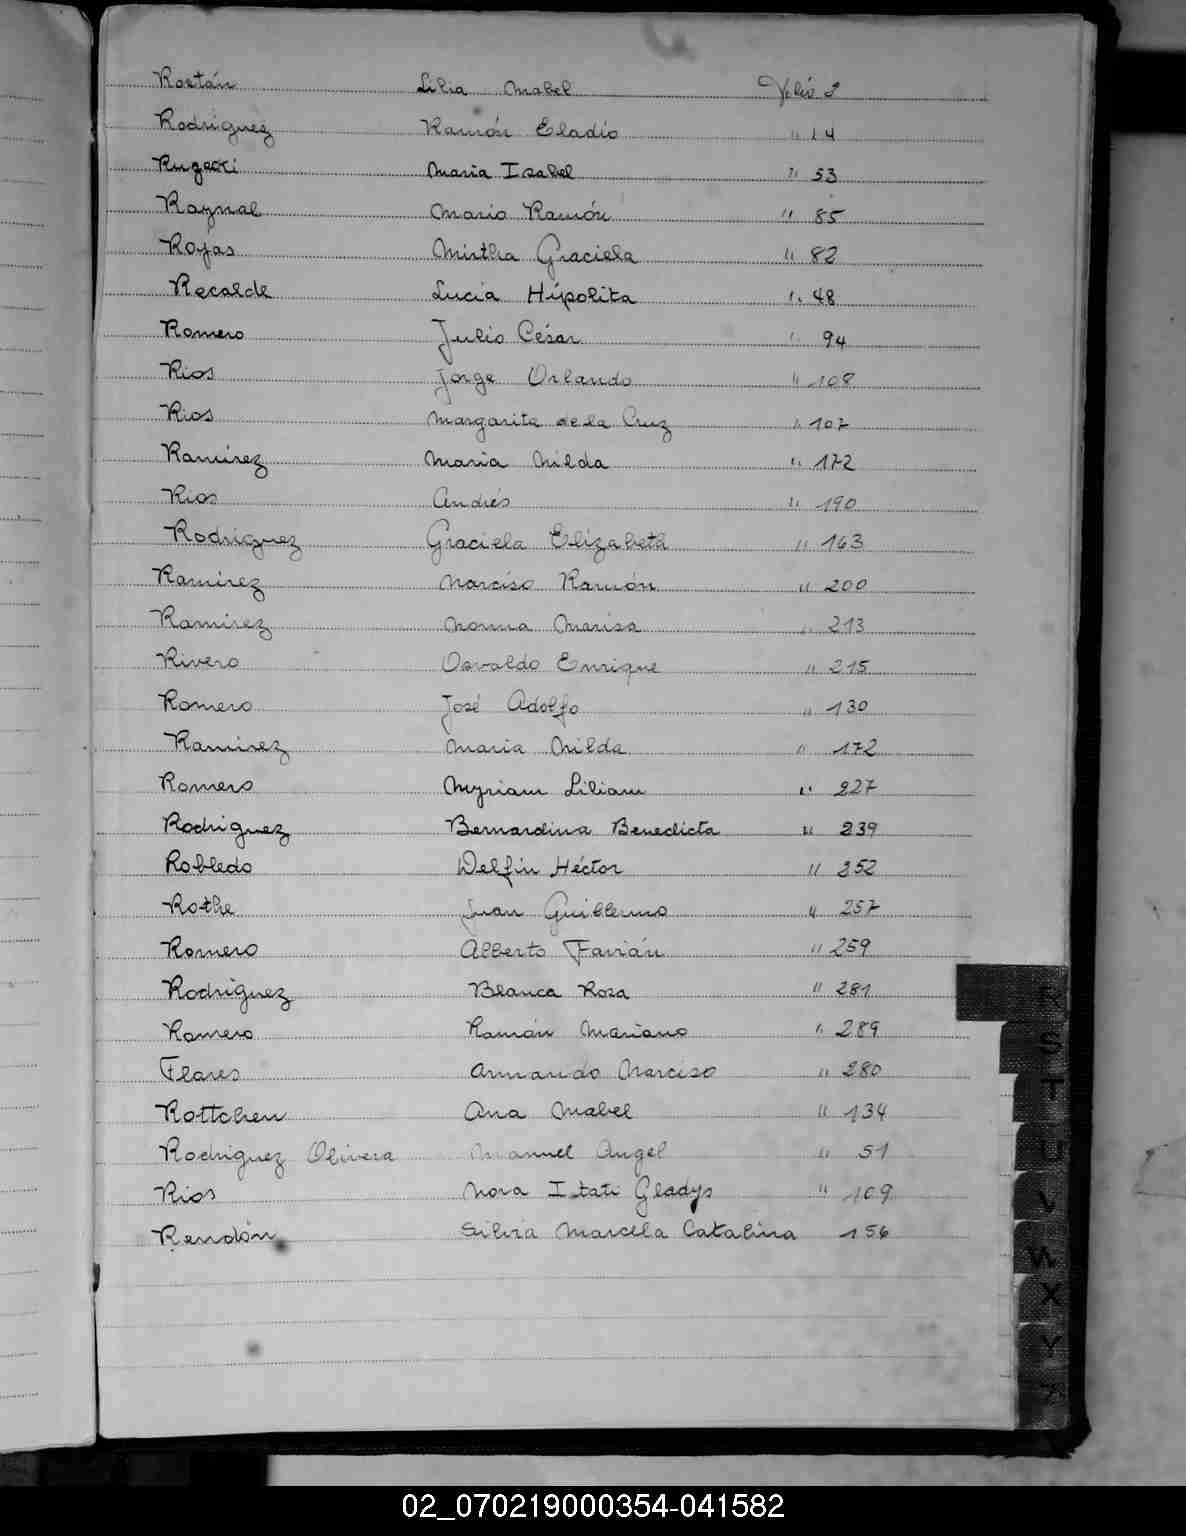 Roetán Lilia Mabel Folio 2
Rodriguez Ramón Eladio " 14
Maria Isabel " 53
Raynal Mario Ramón " 85
Rojas Mirtha Graciela " 82
Recalde Lucía Hipolita " 48
Romero Julio César " 94
Rios Jorge Orlando " 108
Rios Margarita de la Cruz " 107
Ramírez Maria Nilda " 172
Rios Andrés " 190
Rodriguez Graciela Elizabeth " 163
Ramirez Narciso Ramón " 200
Ramirez Norma Marisa " 213
Rivero Osvaldo Enrique " 215
Romero José Adolfo " 130
Ramirez Maria Nilda " 172
Romero Myriam Liliam " 227
Rodriguez Bernardina Benedicta " 239
Robledo Delfín Héctor " 252
Rothe Juan Guillermo " 257
Romero Alberto Favián " 259
Rodriguez Blanca Rosa " 281
Romero Ramón Mariano " 289
Flores Armando Narciso " 280
Rottchen Ana Mabel " 134
Rodriguez Olivera Manuel Angel " 51
Rios Nora Itati Gladys " 109
Rendón Silvia Marcela Catalina 156
R
S
T
U
V
W
X
Y
Z
02_070219000354-041582